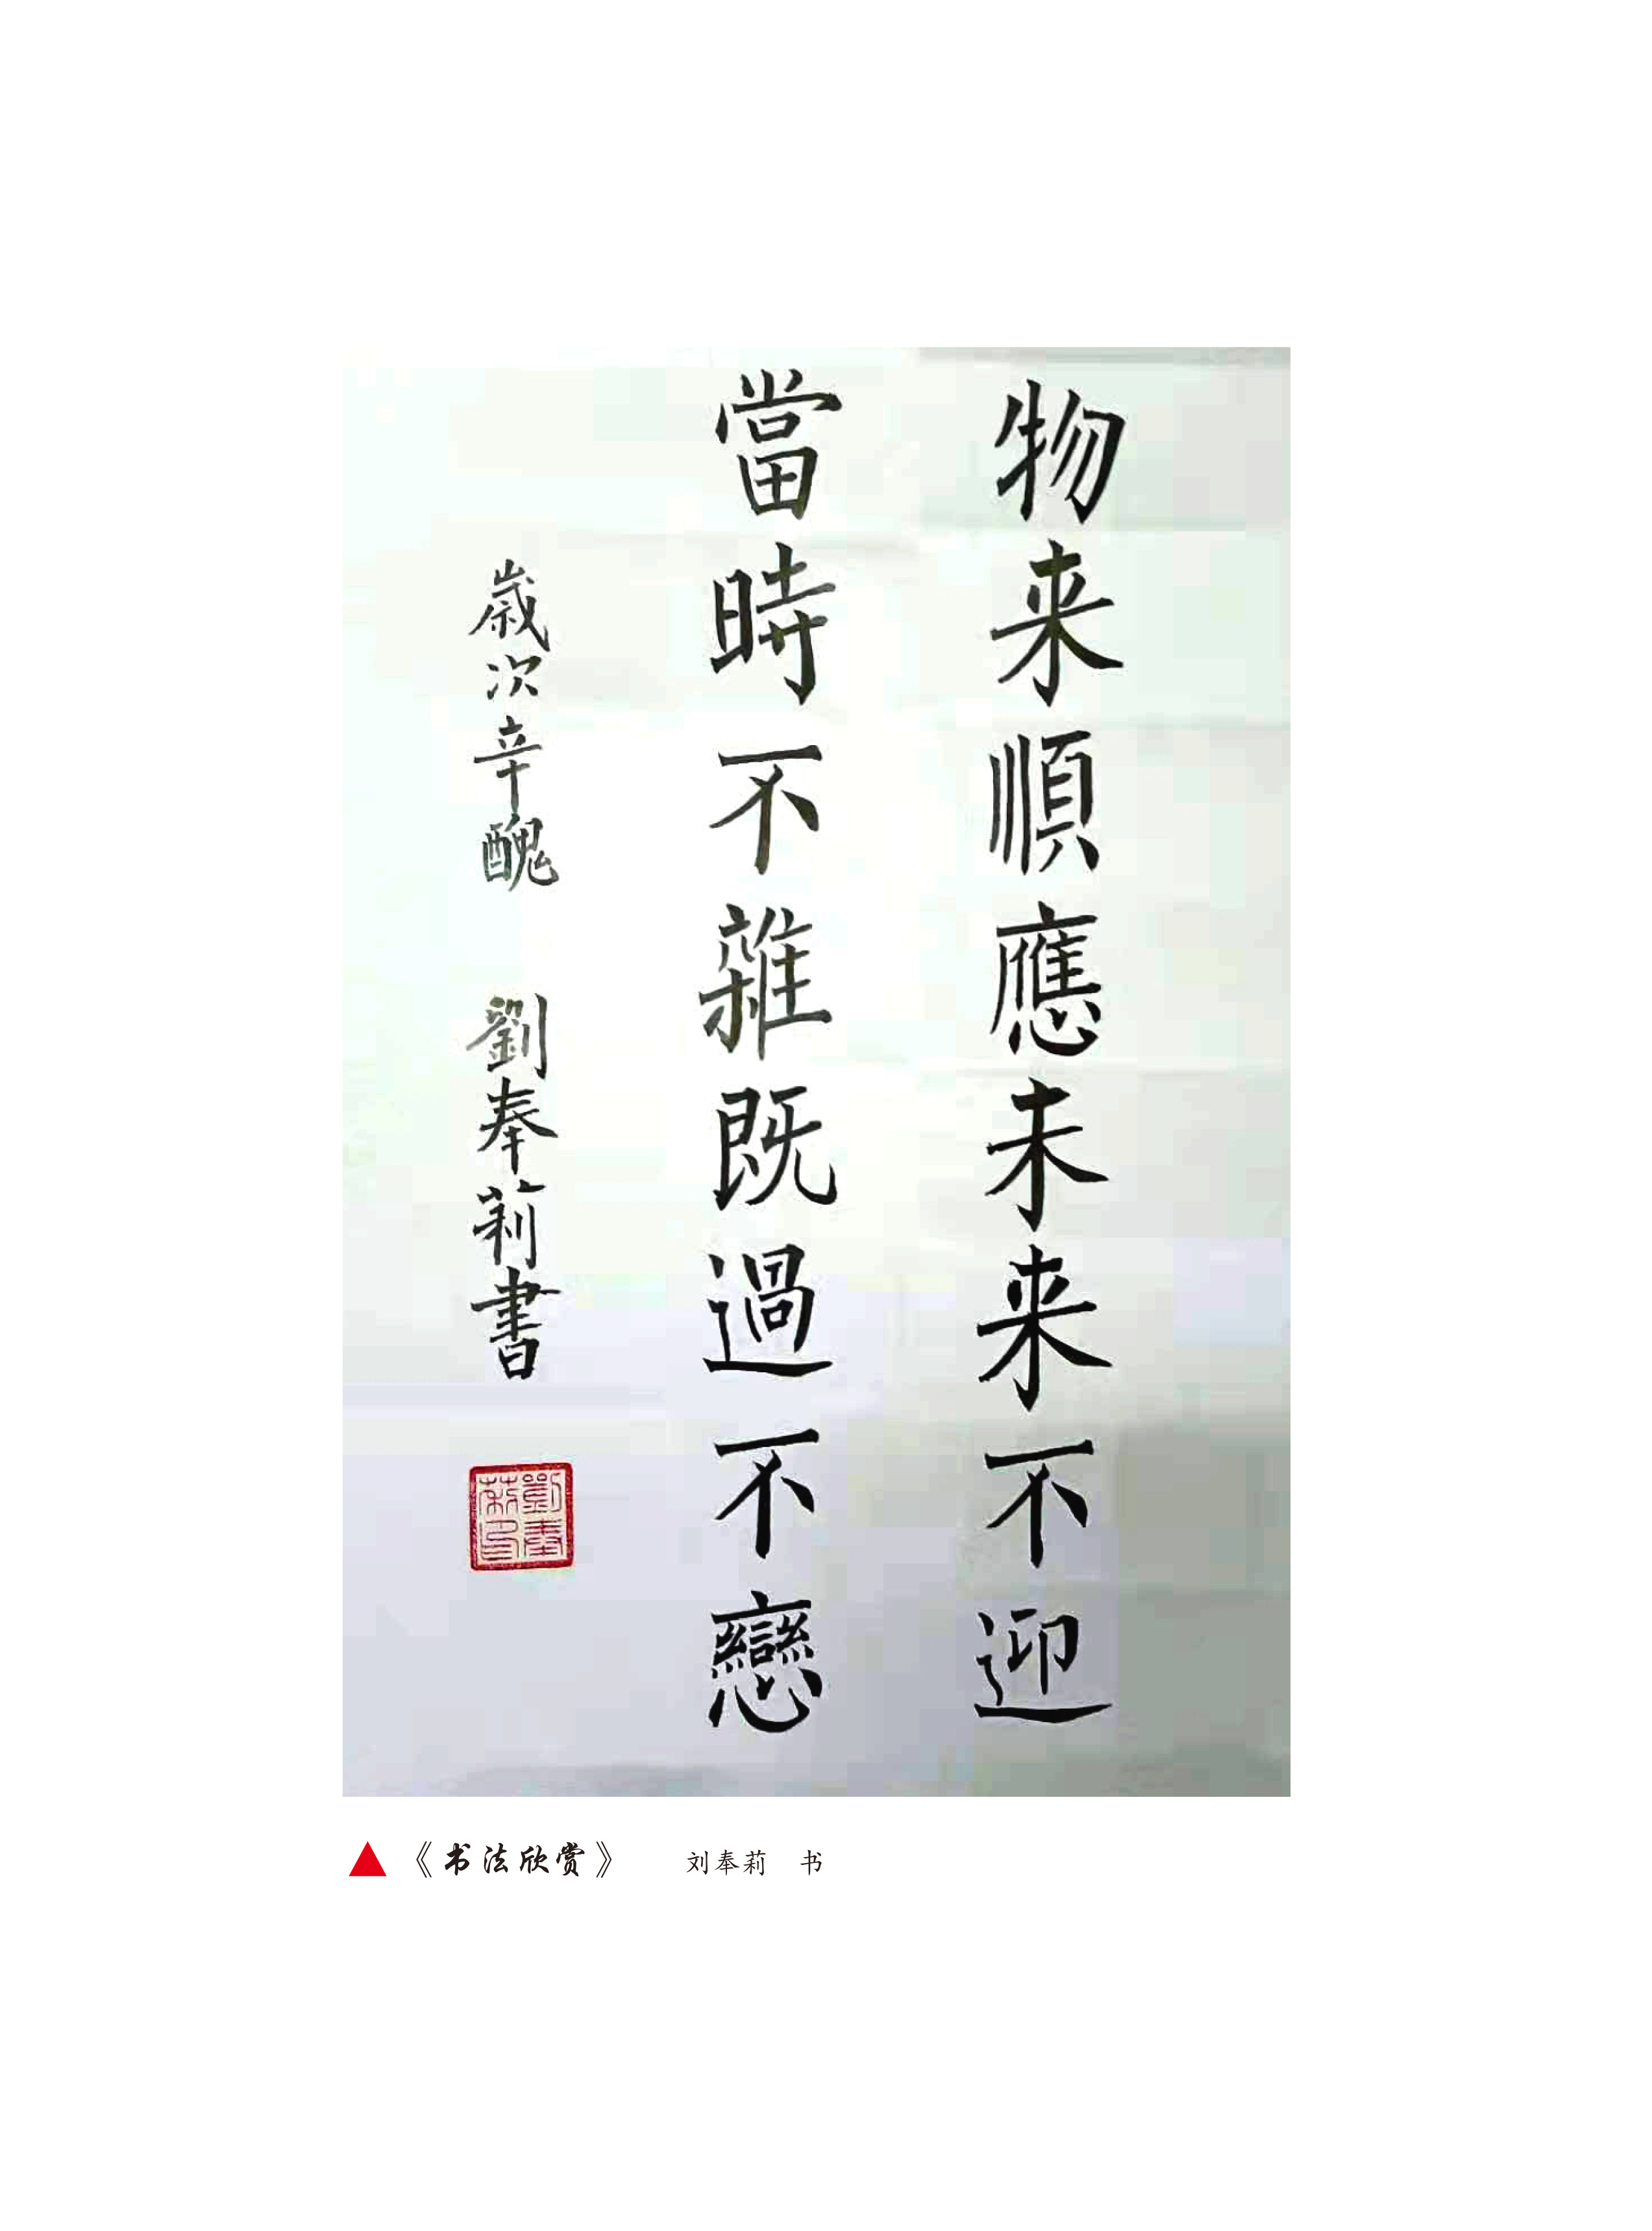 物来順應未来不迎
當時不雜既過不戀
歲次辛醜 劉奉莉書
劉奉莉印
《书法欣赏》 刘奉莉 书